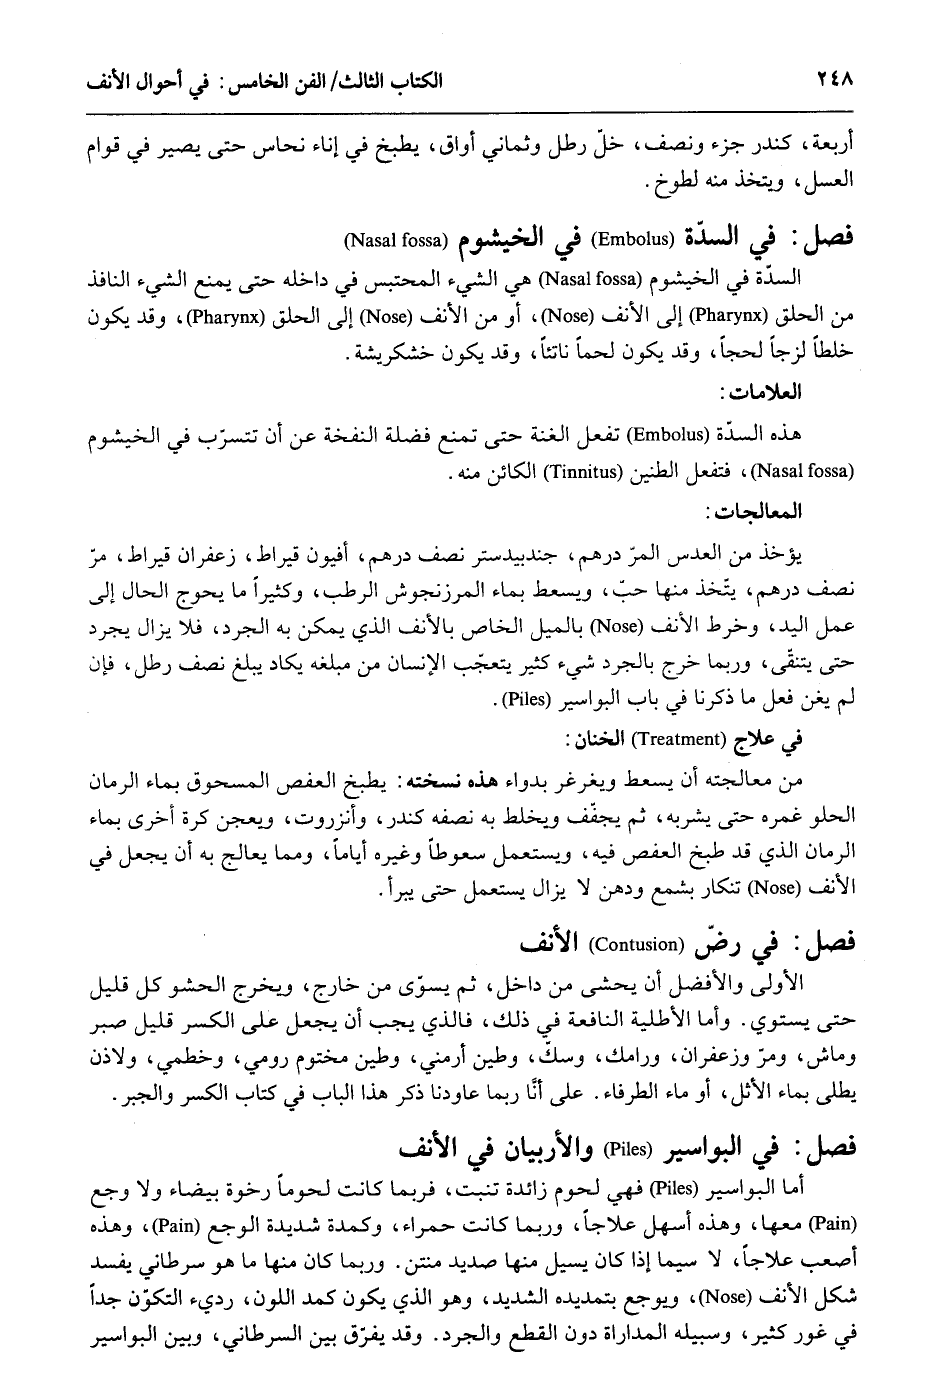 ٢٤٨ الكتاب الثالث/ الفن الخامس: في أحوال الأنف
أربعة، كندر جزء ونصف، خلّ رطل وثماني أواق، يطبخ في إناء نحاس حتى يصير في قوام
العسل، ويتخذ منه لطوخ.
فصل: في السدّة (Embolus) في الخيشوم (Nasal fossa)
السدّة في الخيشوم (Nasal fossa) هي الشيء المحتبس في داخله حتى يمنع الشيء النافذ
من الحلق (Pharynx) إلى الأنف (Nose)، أو من الأنف (Nose) إلى الحلق (Pharynx)، وقد يكون
خلطاً لزجاً لحجاً، وقد يكون لحماً ناتئاً، وقد يكون خشكريشة.
العلامات:
هذه السدّة (Embolus) تفعل الغنة حتى تمنع فضلة النفخة عن أن تتسرّب في الخيشوم
(Nasal fossa)، فتفعل الطنين (Tinnitus) الكائن منه.
المعالجات:
يؤخذ من العدس المرّ درهم، جندبيدستر نصف درهم، أفيون قيراط، زعفران قيراط، مرّ
نصف درهم، يتّخذ منها حبّ، ويسعط بماء المرزنجوش الرطب، وكثيراً ما يحوج الحال إلى
عمل اليد، وخرط الأنف (Nose) بالميل الخاص بالأنف الذي يمكن به الجرد، فلا يزال يجرد
حتى يتنقّى، وربما خرج بالجرد شيء كثير يتعجّب الإنسان من مبلغه يكاد يبلغ نصف رطل، فإن
لم يغن فعل ما ذكرنا في باب البواسير (Piles).
في علاج (Treatment) الخنان:
من معالجته أن يسعط ويغرغر بدواء هذه نسخته: يطبخ العفص المسحوق بماء الرمان
الحلو غمره حتى يشربه، ثم يجفّف ويخلط به نصفه كندر، وأنزروت، ويعجن كرة أخرى بماء
الرمان الذي قد طبخ العفص فيه، ويستعمل سعوطاً وغيره أياماً، ومما يعالج به أن يجعل في
الأنف (Nose) تنكار بشمع ودهن لا يزال يستعمل حتى يبرأ.
فصل: في رضّ (Contusion) الأنف
الأولى والأفضل أن يحشى من داخل، ثم يسوّى من خارج، ويخرج الحشو كل قليل
حتى يستوي. وأما الأطلية النافعة في ذلك، فالذي يجب أن يجعل على الكسر قليل صبر
وماش، ومرّ وزعفران، ورامك، وسكّ، وطين أرمني، وطين مختوم رومي، وخطمي، ولاذن
يطلى بماء الأثل، أو ماء الطرفاء. على أنَّا ربما عاودنا ذكر هذا الباب في كتاب الكسر والجبر.
فصل: في البواسير (Piles) والأربيان في الأنف
أما البواسير (Piles) فهي لحوم زائدة تنبت، فربما كانت لحوماً رخوة بيضاء ولا وجع
(Pain) معها، وهذه أسهل علاجاً، وربما كانت حمراء، وكمدة شديدة الوجع (Pain)، وهذه
أصعب علاجاً، لا سيما إذا كان يسيل منها صديد منتن. وربما كان منها ما هو سرطاني يفسد
شكل الأنف (Nose)، ويوجع بتمديده الشديد، وهو الذي يكون كمد اللون، رديء التكوّن جداً
في غور كثير، وسبيله المداراة دون القطع والجرد. وقد يفرّق بين السرطاني، وبين البواسير